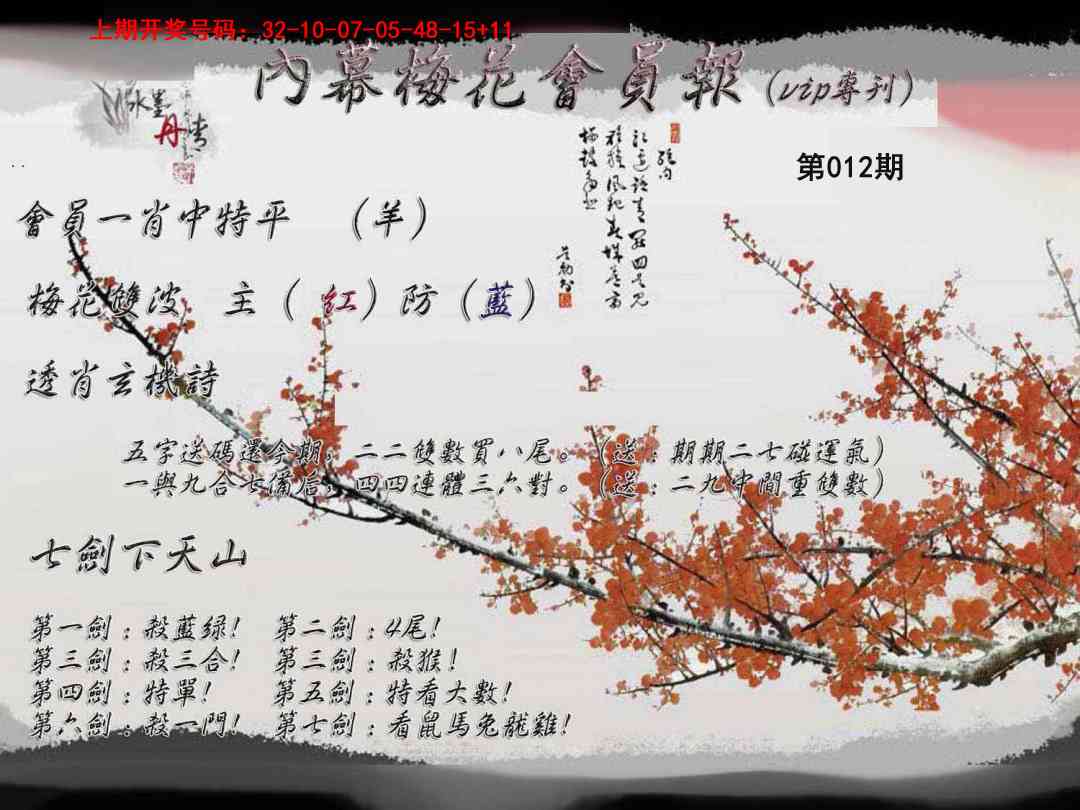 上期开奖号码：32-10-07-05-48-15+11
內幕梅花會員報（vip專刊）
水墨丹青
第012期
會員一肖中特平 （羊）
梅花雙波 主（紅）防（藍）
透肖玄機詩
五字送碼還今期，二二雙數買八尾。（送：期期二七碰運氣）
一與九合七備后，四四連體三六對。（送：二九中間重雙數）
七劍下天山
第一劍：殺藍绿！ 第二劍：4尾！
第三劍：殺三合！ 第三劍：殺猴！
第四劍：特單！ 第五劍：特看大數！
第六劍：殺一門！ 第七劍：看鼠馬兔龍雞！